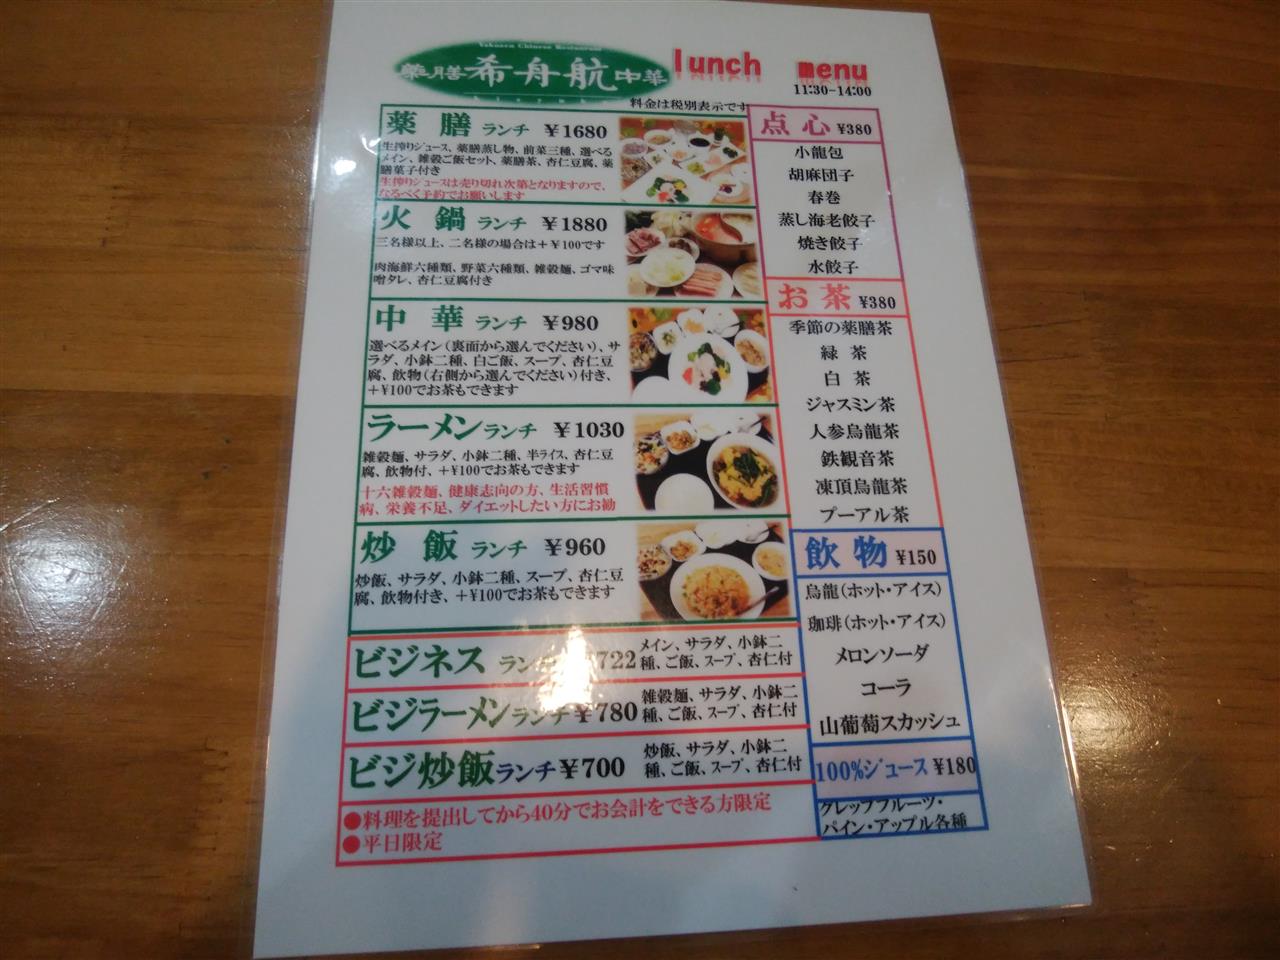 Yakuzen Chinese Restaurant
薬膳 希舟航 中華
lunch menu
11:30-14:00
料金は税別表示です
薬膳 ランチ ¥1680
生搾りジュース、薬膳蒸し物、前菜三種、選べる
メイン、雑穀ご飯セット、薬膳茶、杏仁豆腐、薬
膳菓子付き
生搾りジュースは売り切れ次第となりますので、
なるべく予約でお願いします
火鍋 ランチ ¥1880
三名様以上、二名様の場合は+¥100です
肉海鮮六種類、野菜六種類、雑穀麺、ゴマ味
噌タレ、杏仁豆腐付き
中華 ランチ ¥980
選べるメイン(裏面から選んでください)、サ
ラダ、小鉢二種、白ご飯、スープ、杏仁豆
腐、飲物(右側から選んでください)付き、
+¥100でお茶もできます
ラーメンランチ ¥1030
雑穀麺、サラダ、小鉢二種、半ライス、杏仁豆
腐、飲物付、+¥100でお茶もできます
十六雑穀麺、健康志向の方、生活習慣
病、栄養不足、ダイエットしたい方にお勧
炒飯 ランチ ¥960
炒飯、サラダ、小鉢二種、スープ、杏仁豆
腐、飲物付き、+¥100でお茶もできます
ビジネス ランチ 722
メイン、サラダ、小鉢二
種、ご飯、スープ、杏仁付
ビジラーメンランチ¥780
雑穀麺、サラダ、小鉢二
種、ご飯、スープ、杏仁付
ビジ炒飯ランチ¥700
炒飯、サラダ、小鉢二
種、ご飯、スープ、杏仁付
●料理を提出してから40分でお会計をできる方限定
●平日限定
点心 ¥380
小龍包
胡麻団子
春巻
蒸し海老餃子
焼き餃子
水餃子
お茶 ¥380
季節の薬膳茶
緑茶
白茶
ジャスミン茶
人参烏龍茶
鉄観音茶
凍頂烏龍茶
プーアル茶
飲物 ¥150
烏龍(ホット・アイス)
珈琲(ホット・アイス)
メロンソーダ
コーラ
山葡萄スカッシュ
100%ジュース ¥180
グレップフルーツ・
パイン・アップル各種